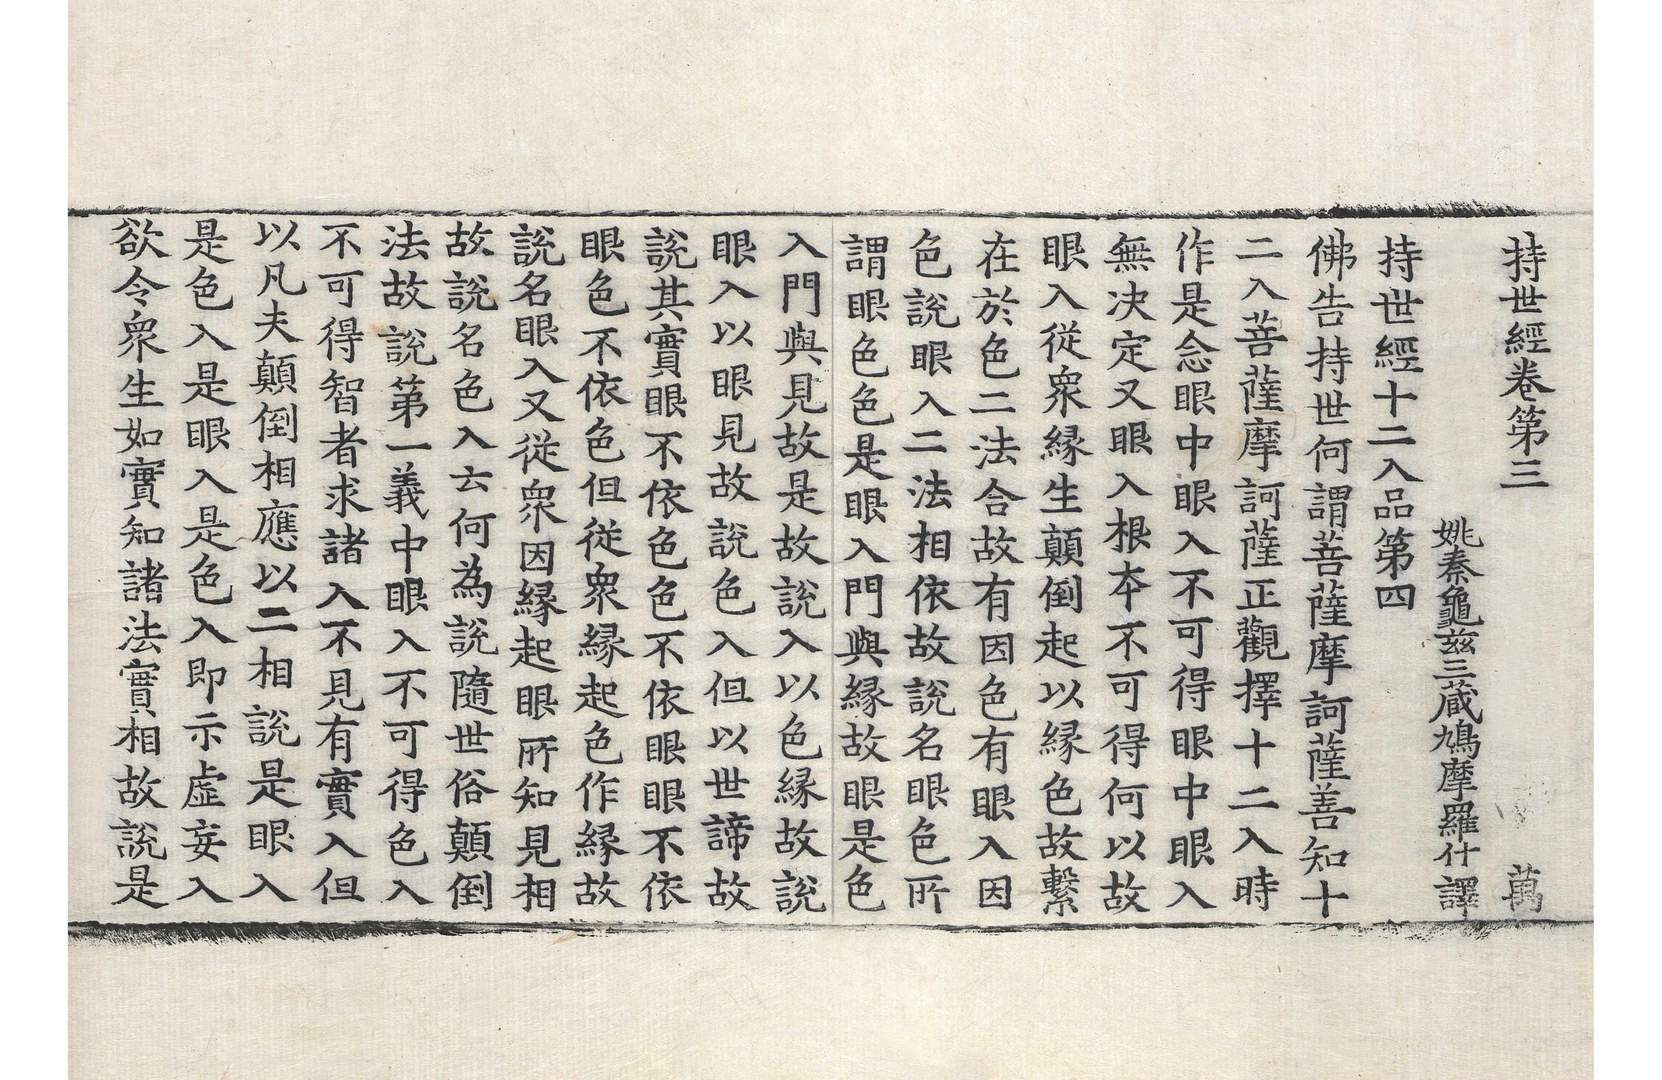 持世經卷第三 萬
姚秦龜茲三藏鳩摩羅什譯
持世經十二入品第四
佛告持世何謂菩薩摩訶薩善知十
二入菩薩摩訶薩正觀擇十二入時
作是念眼中眼入不可得眼中眼入
無决定又眼入根本不可得何以故
眼入從衆縁生顛倒起以縁色故繫
在於色二法合故有因色有眼入因
色說眼入二法相依故說名眼色所
謂眼色色是眼入門與縁故眼是色
入門與見故是故說入以色縁故說
眼入以眼見故說色入但以世諦故
說其實眼不依色色不依眼眼不依
眼色不依色但從衆縁起色作縁故
說名眼入又從衆因縁起眼所知見相
故說名色入云何為說隨世俗顛倒
法故說第一義中眼入不可得色入
不可得智者求諸入不見有實入但
以凡夫顛倒相應以二相說是眼入
是色入是眼入是色入即示虛妄入
欲令衆生如實知諸法實相故說是